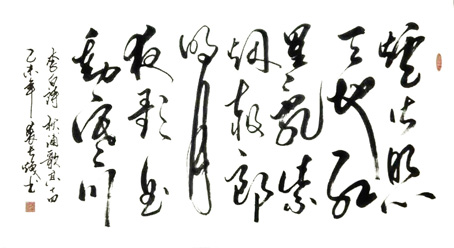 爐火照
天地红
星亂紫
烟赧郎
明月
夜歌曲
動寒川
李白詩 秋浦歌其十四
乙未年